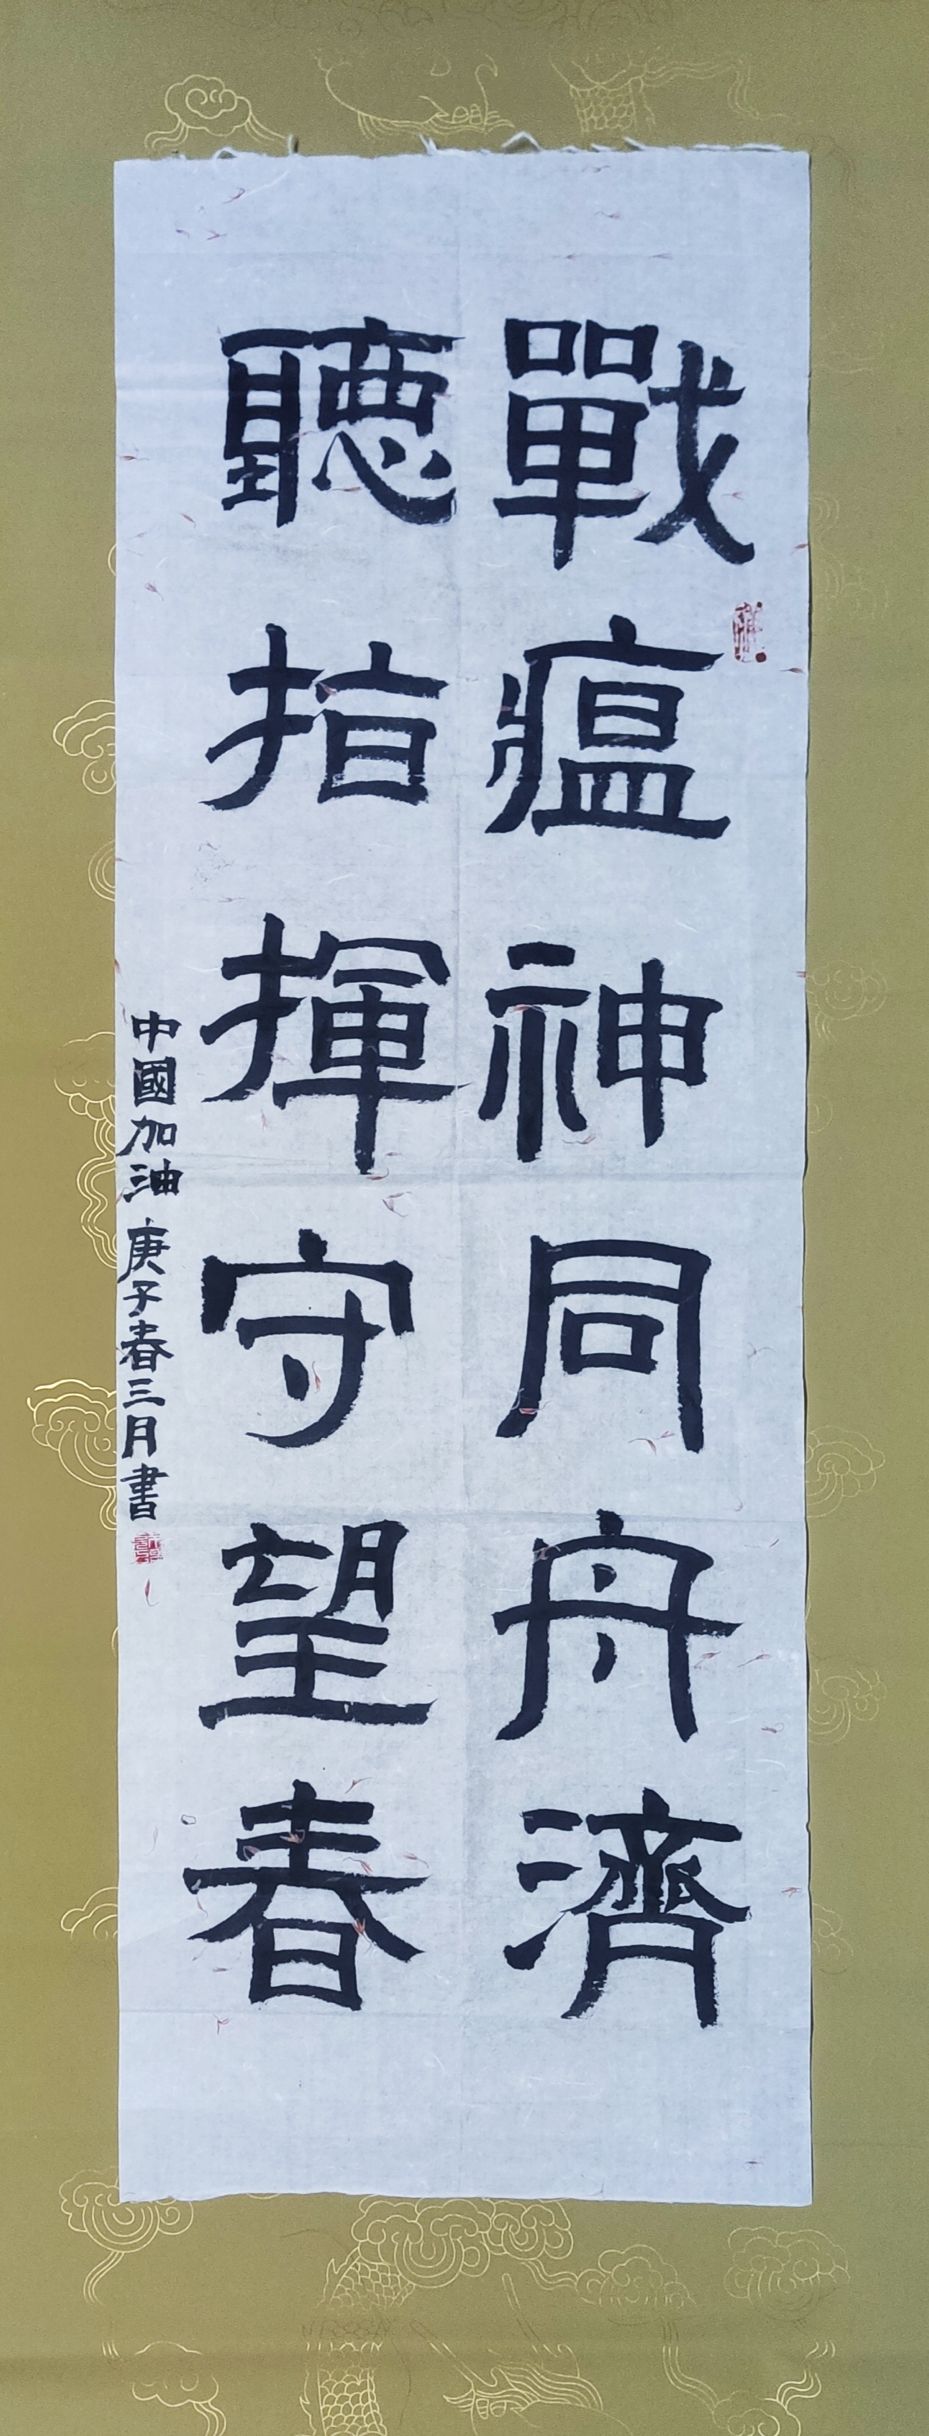 戰瘟神同舟濟
聽指揮守望春
中國加油 庚子春三月書